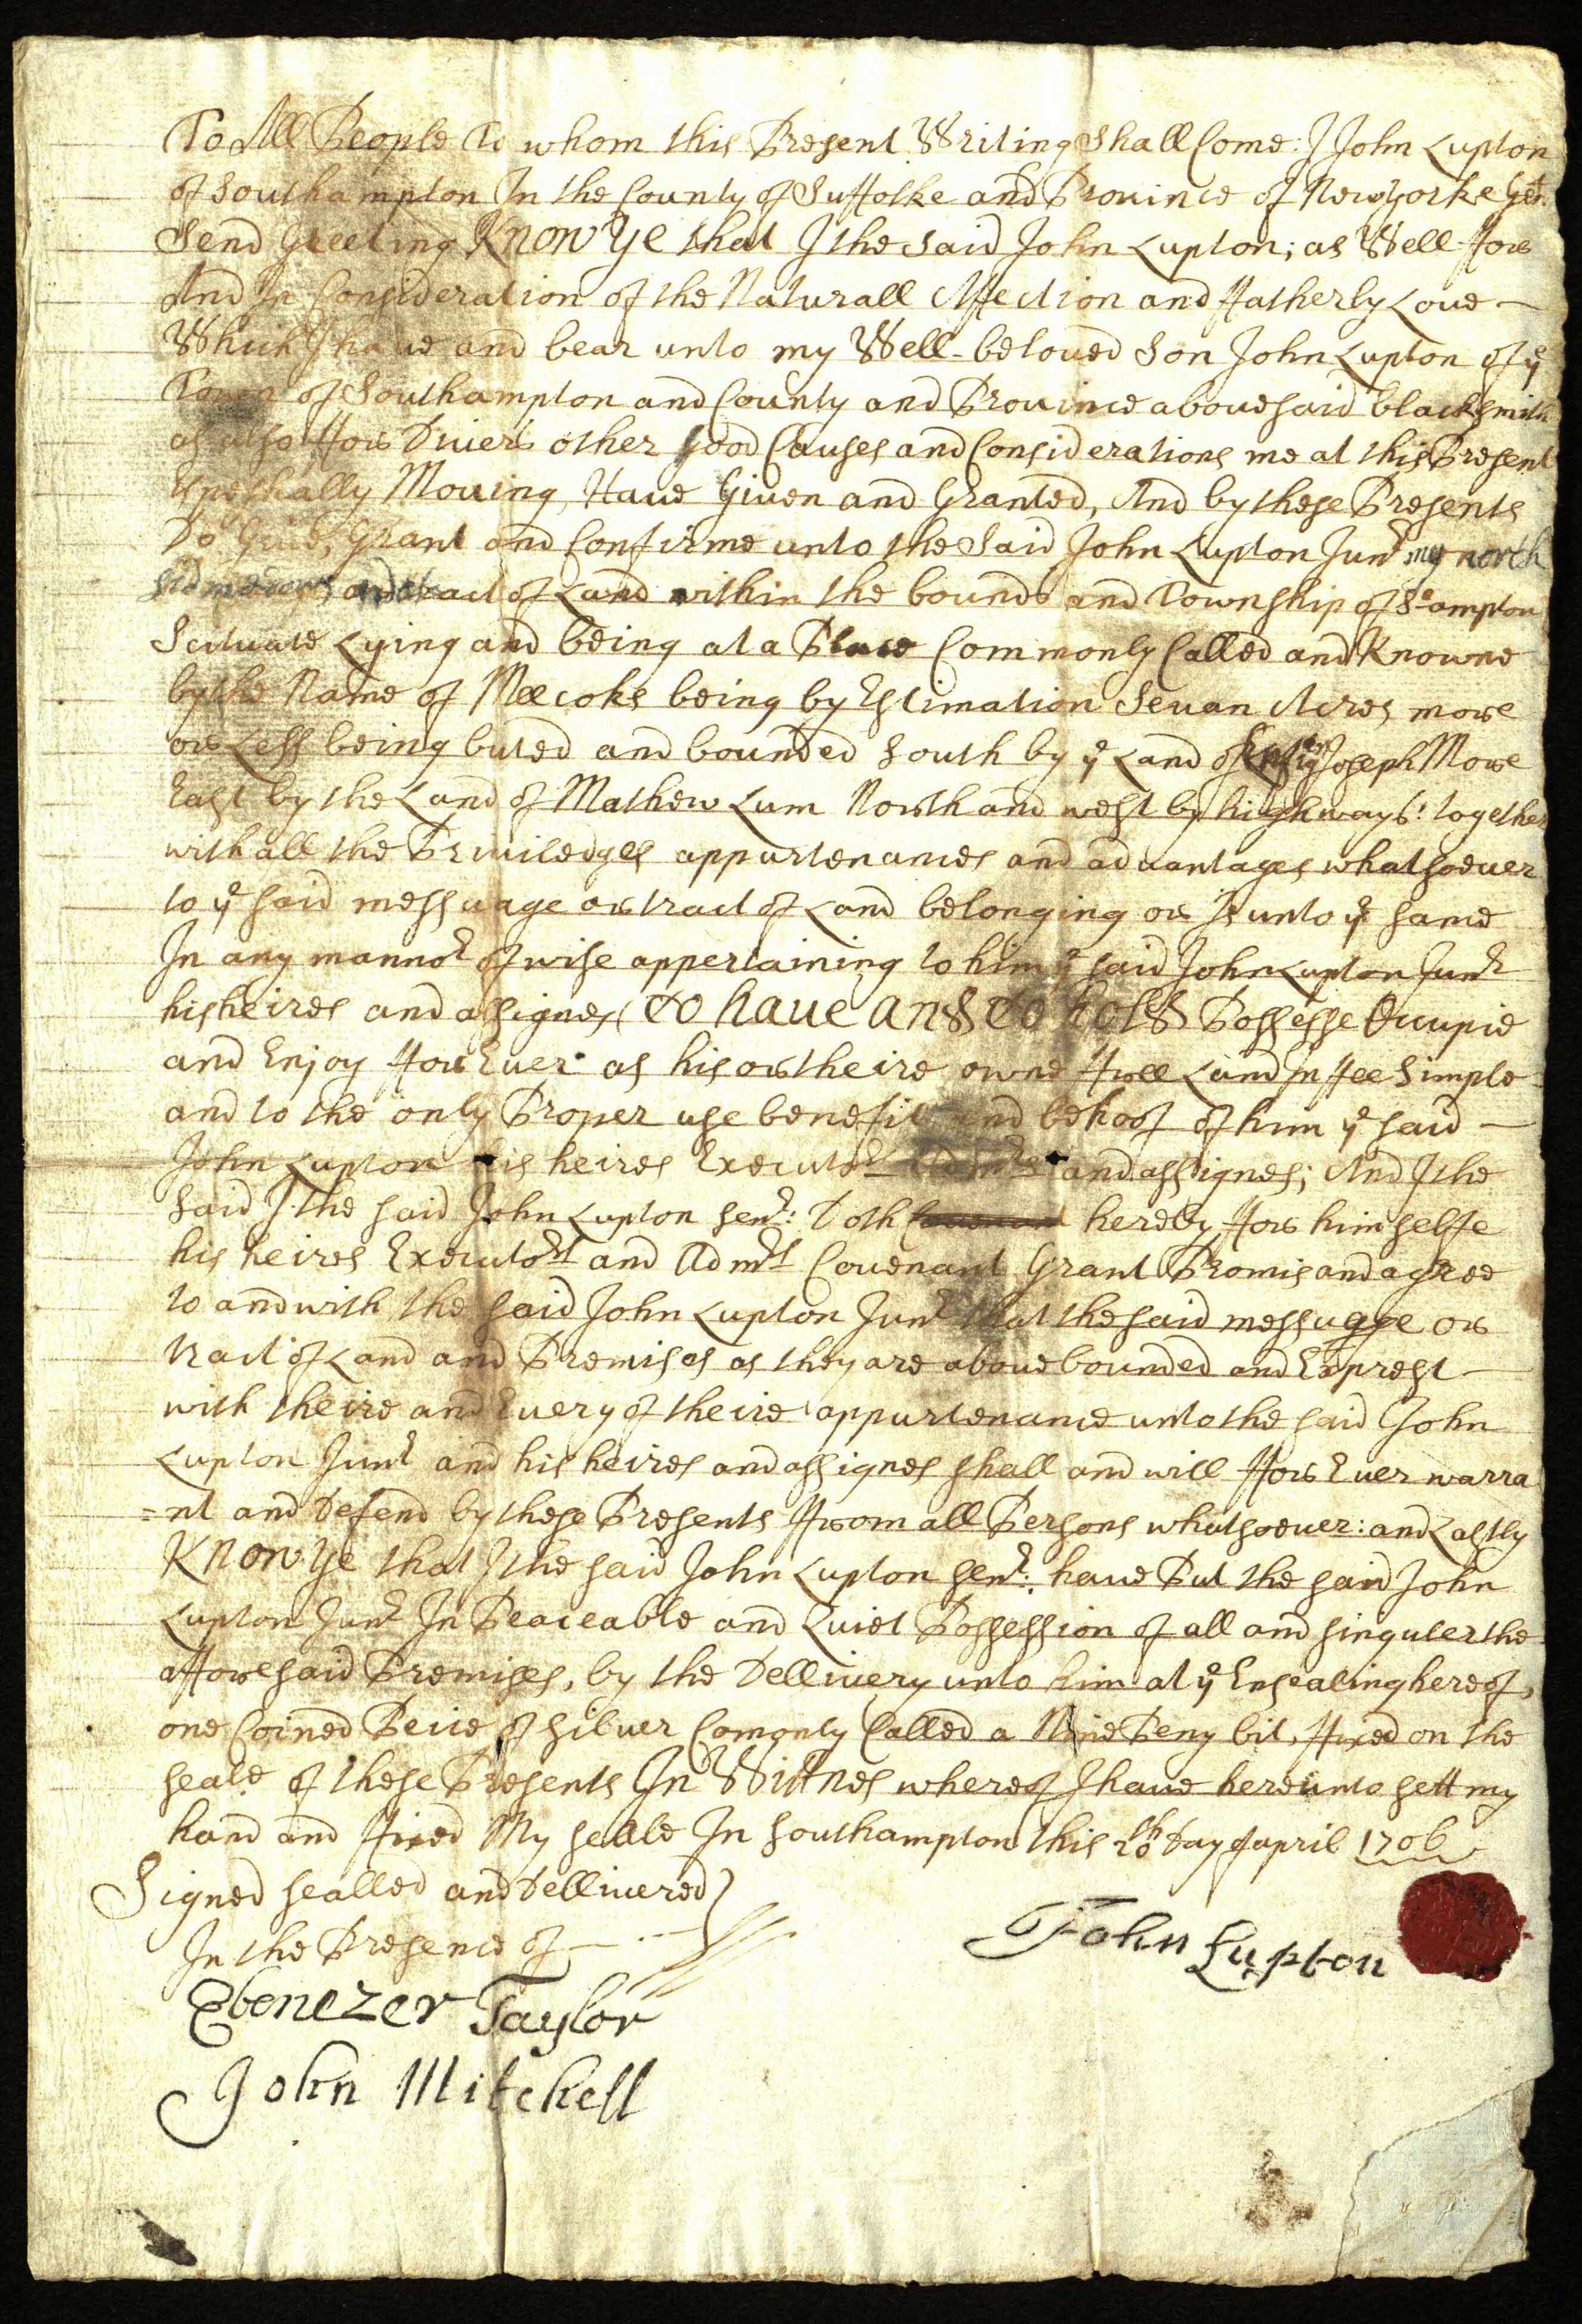 To All People To whom this Present Writing shall Come: I John Lupton
of Southampton In the County of Suffolke and Prouince of New Yorke Gent
Send Greeting Know Ye that I the said John Lupton; as Well ffor
And In Consideration of the Naturall Affection and ffatherly Loue —
Which I haue and bear unto my Well-beloued Son John Lupton of ye
Town of Southampton and County and Prouince abouesaid blacksmith
as also ffor Diuers other good Causes and Considerations me at this Present
Espeshally Mouing, Haue Giuen and Granted, And by these Presents
Do Giue, Grant and Confirme unto the Said John Lupton Junr my north
sid medow and tract of Land within the bounds and Township of So-ampton
Scituate Lying and being at a Place Commonly Called and Knowne
by the Name of Meecoks being by Estimation Seuan Acres more
or Less being buted and bounded South by ye Land of Joseph More
East by the Land of Mathew Lum North and west by highways: together
with all the Priuiledges appurtenances and aduantages whatsoeuer
to ye said messuage or tract of Land belonging or Is unto ye same
In any mannor of wise appertaining to him ye said John Lupton Junr
his heires and assignes, To haue and To hold Possesse Occupie
and Enjoy ffor Euer as his or theire owne ffree Land In ffee Simple
and to the only Proper use benefit and behoof of him ye said —
John Lupton his heires Executors Admrs and assignes; And I the
said I the said John Lupton senr: Doth Couenant hereby ffor himselfe
his heires Executors and Admrs Couenant Grant Promis and agree
to and with the said John Lupton Junr that the said messuage or
tract of Land and Premises as they are aboue bounded and Exprest —
with theire and Euery of theire appurtenance unto the said John
Lupton Junr and his heires and assignes shall and will ffor Euer warra
=nt and Defend by these Presents ffrom all Persons whatsoeuer: and Lastly
Know Ye that I the said John Lupton senr: haue Put the said John
Lupton Junr In Peaceable and Quiet Possession of all and singuler the
afforesaid Premises, by the Delliuery unto him at ye Ensealing hereof,
one Coined Peice of siluer Comonly Called a Nine Peny bit, ffixed on the
seale of these Presents In Wittnes whereof I haue hereunto sett my
hand and ffixed My seale In Southampton this 20th Day of april 1706
Signed sealled and Delliuered
In the Presence of —
John Lupton
Ebenezer Taylor
John Mitchell